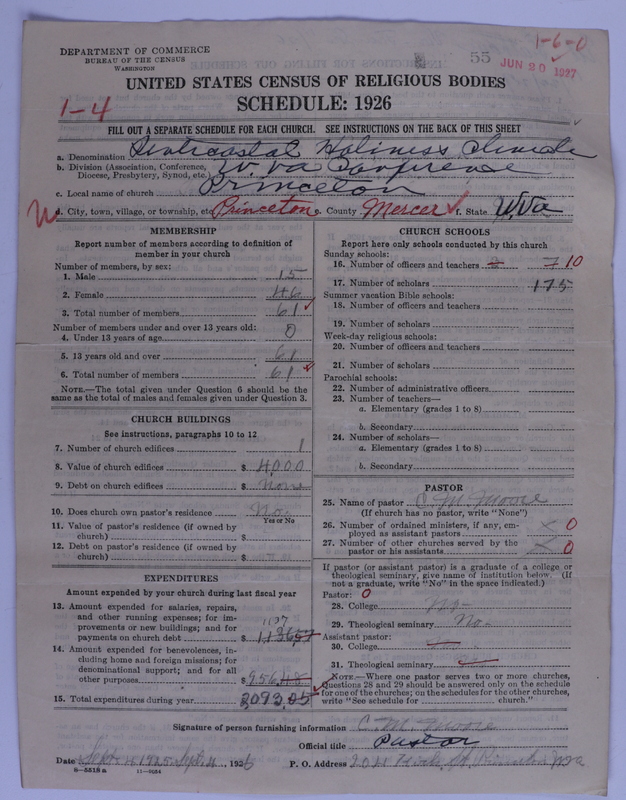 DEPARTMENT OF COMMERCE
BUREAU OF THE CENSUS
WASHINGTON
55
1-6-0
JUN 20 1927
UNITED STATES CENSUS OF RELIGIOUS BODIES
1-4
SCHEDULE: 1926
FILL OUT A SEPARATE SCHEDULE FOR EACH CHURCH. SEE INSTRUCTIONS ON THE BACK OF THIS SHEET
a. Denomination Pentecostal Holiness Church
b. Division (Association, Conference, Diocese, Presbytery, Synod, etc.) W. Va Conference
c. Local name of church Princeton
d. City, town, village, or township, etc. Princeton e. County Mercer f. State W. Va
MEMBERSHIP
Report number of members according to definition of member in your church
Number of members, by sex:
1. Male 15
2. Female 46
3. Total number of members 61
Number of members under and over 13 years old:
4. Under 13 years of age 0
5. 13 years old and over 61
6. Total number of members 61
NOTE.—The total given under Question 6 should be the same as the total of males and females given under Question 3.
CHURCH BUILDINGS
See instructions, paragraphs 10 to 12
7. Number of church edifices 1
8. Value of church edifices $ 4,000
9. Debt on church edifices $ None
10. Does church own pastor's residence No.
Yes or No
11. Value of pastor's residence (if owned by church) $
12. Debt on pastor's residence (if owned by church) $
EXPENDITURES
Amount expended by your church during last fiscal year
13. Amount expended for salaries, repairs, and other running expenses; for improvements or new buildings; and for payments on church debt $
14. Amount expended for benevolences, including home and foreign missions; for denominational support; and for all other purposes $ 956.48
15. Total expenditures during year 2093.05
CHURCH SCHOOLS
Report here only schools conducted by this church
Sunday schools:
16. Number of officers and teachers 10
17. Number of scholars 175
Summer vacation Bible schools:
18. Number of officers and teachers
19. Number of scholars
Week-day religious schools:
20. Number of officers and teachers
21. Number of scholars
Parochial schools:
22. Number of administrative officers
23. Number of teachers—
a. Elementary (grades 1 to 8)
b. Secondary
24. Number of scholars—
a. Elementary (grades 1 to 8)
b. Secondary
PASTOR
25. Name of pastor C. M. Moore
(If church has no pastor, write "None")
26. Number of ordained ministers, if any, employed as assistant pastors x 0
27. Number of other churches served by the pastor or his assistants x 0
If pastor (or assistant pastor) is a graduate of a college or theological seminary, give name of institution below. (If not a graduate, write "No" in the space indicated.)
Pastor: 0
28. College No-
29. Theological seminary No-
Assistant pastor:
30. College No
31. Theological seminary
NOTE.—Where one pastor serves two or more churches, Questions 28 and 29 should be answered only on the schedule for one of the churches; on the schedules for the other churches, write "See schedule for church."
Signature of person furnishing information C. M. Moore
Official title Pastor
Date Sept 1925 Sept , 1926 P. O. Address Princeton W Va
8-5518 a 11-9054